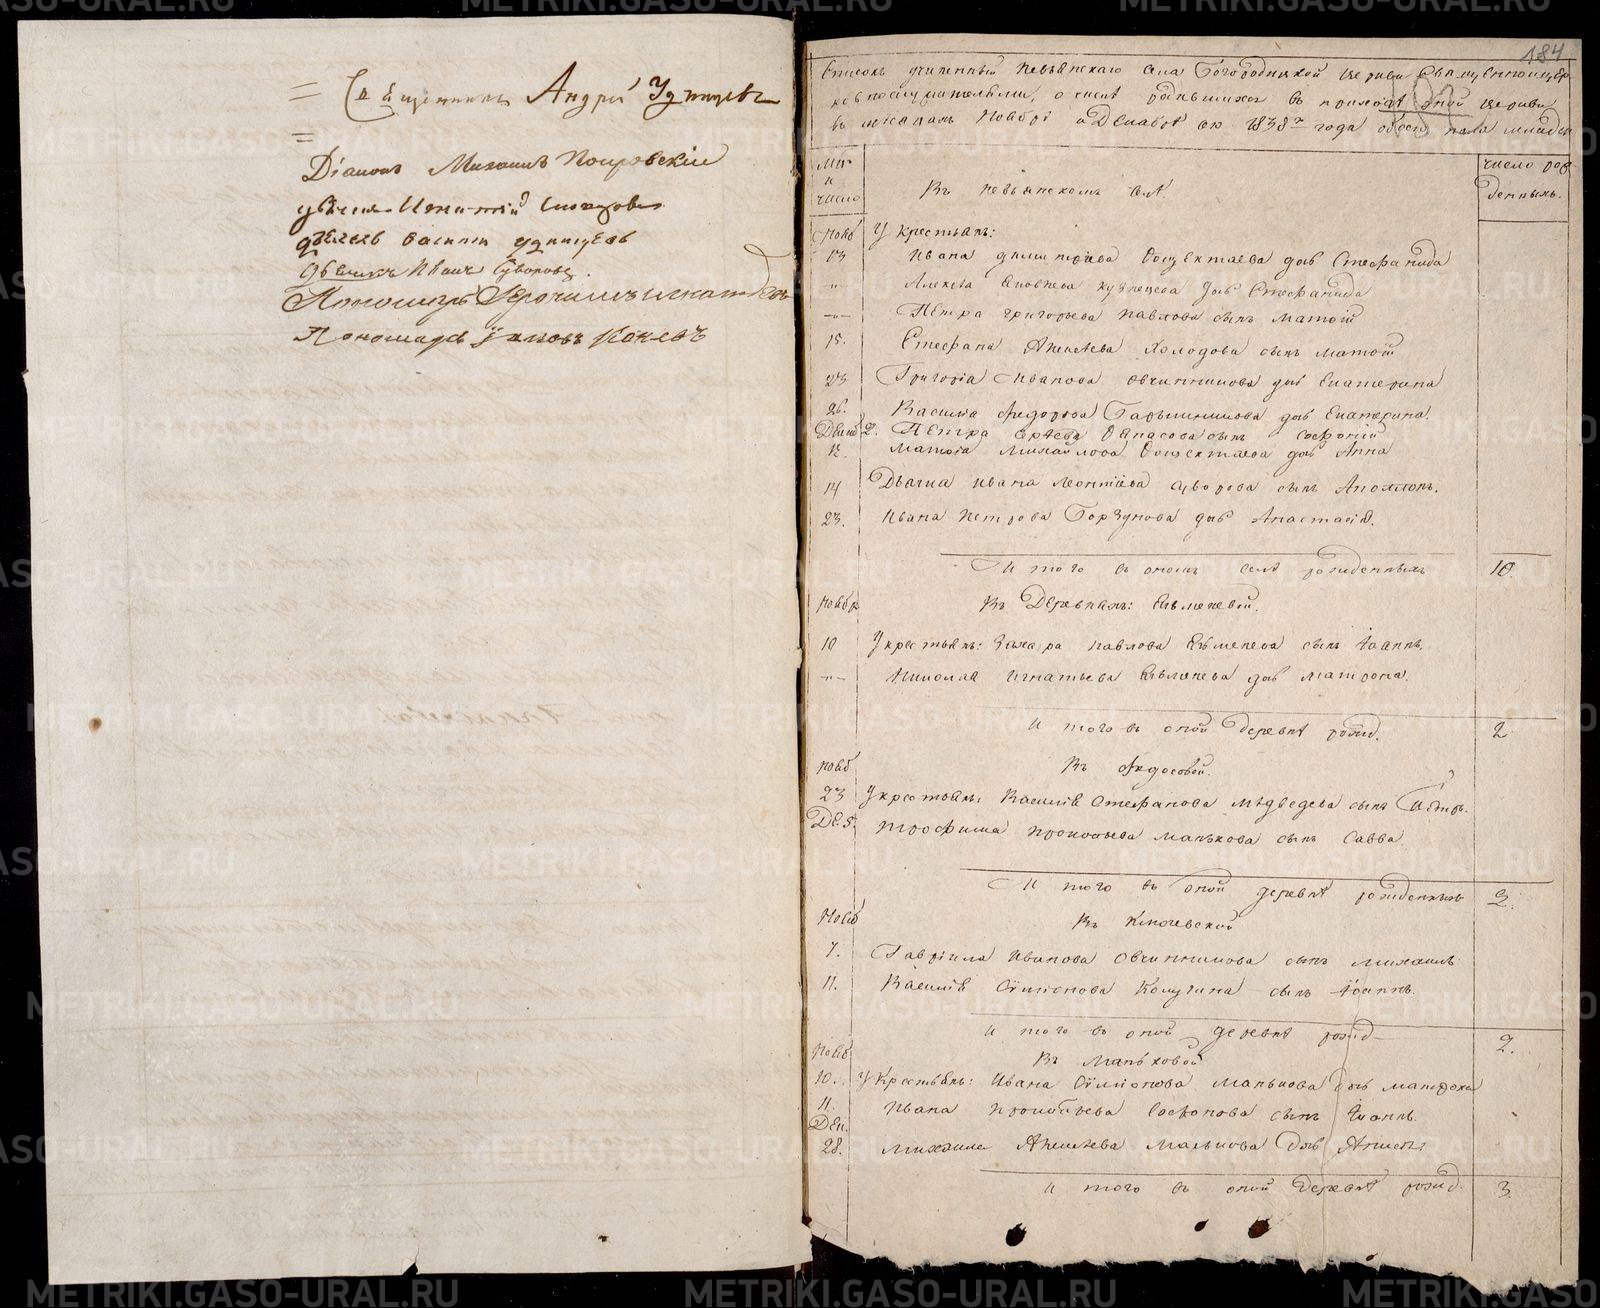 Священникъ Андрей Удинцевъ
Діаконъ Михаилъ Покровскій
Игнатій
дьячекъ Василій Удинцовъ
дьячекъ Иванъ Суворовъ
Пономарь
Пономарь Іаковъ Коневъ
184
Списокъ учиненный Невьянскаго села Богородицкой церкви священноцер
ковнослужителями, о числѣ родившихся въ приходѣ оной церкви
въ мѣсяцахъ Ноябрѣ и Декабрѣ сю 1838го года обоего пола младен
число рож
денныхъ.
и
число
Въ Невьянскомъ селѣ.
Нояб У крестьянъ:
13 Ивана Димитріева дщь Стефанида
-"- Алексѣя Яковлева Кузнецова дщь Стефанида
-"- Петра Григорьева Павлова сынъ Матѳій
15. Стефана Алексѣева Холодова сынъ Матѳій
23 Григорія Иванова Овчинникова дщь Екатерина
26. Василія Ѳедорова дщь Екатерина.
Декаб 2. Петра сынъ Софроній
12. Матѳія Михайлова дщь Анна
14 Дьячка Ивана Леонтіева Суворова сынъ Аполлонъ.
23. Ивана Петрова Горзунова дщь Анастасія.
Итого въ ономъ селѣ рожденныхъ 10.
Ноябр Въ Деревняхъ:
10 У крестьянъ: Захара Павлова сынъ Іоаннъ.
-"- Николая Игнатьева дщь Матрона.
Итого въ оной деревнѣ рожд. 2
Нояб Въ Ѳедосовой.
23 У крестьянъ: Василія Стефанова Медведева сынъ Петръ.
Де. 5. Трофима Прокопьева Манькова сынъ Савва
Итого въ оной деревнѣ рожденныхъ 2.
Нояб Въ Ключевской
7. Гавріила Иванова Овчинникова сынъ Михаилъ
11. Василія Симіонова Колугина сынъ Іоаннъ.
Итого въ оной деревнѣ рожд 2.
Нояб Въ Маньковой
10. У Крестьянъ: Ивана Симіонова Манькова дщь Матрона
11. Ивана Прокопьева Софонова сынъ Іоаннъ.
Дек.
28. Михаила Алексѣева Манькова дщь
Итого въ оной деревнѣ рожд. 3.
METRIKI.GASO-URAL.RU